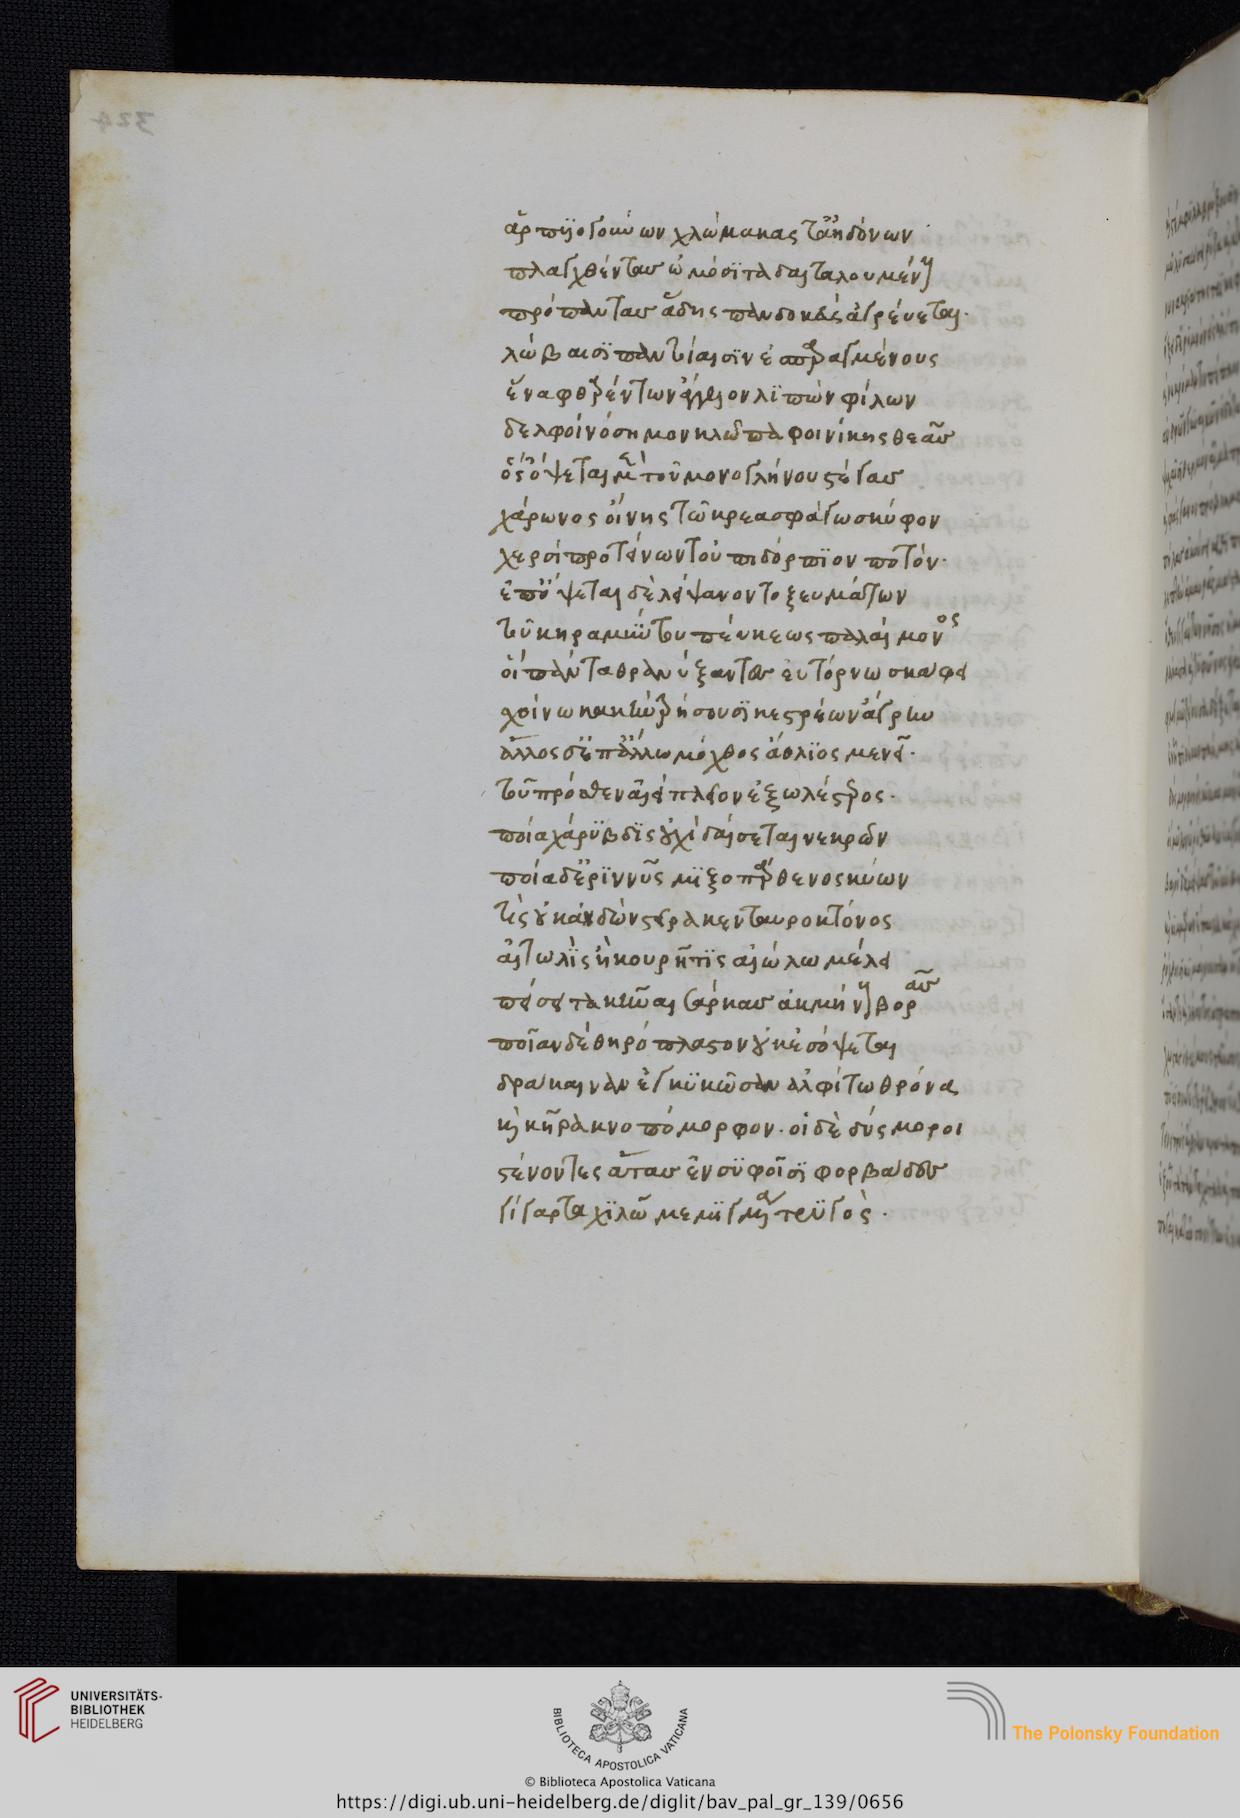 324
ἅρπυιογούνων κλώμακας τ' ἀηδόνων
πλαγχθέντας ὠμόσιτα δαιταλουμένην
πρόπαντας ἅδης πανδοκεὺς ἀγρεύεται
λώβαισι παντοίαισιν ἐσπαραγμένους
ἕνα φθαρέντων ἄγγελον λιπὼν φίλων
δελφινόσημον κλῶπα φοινίκης θεᾶς
ὃς ὄψεται μὲν τοῦ μονογλήνου στέγας
χάρωνος οἴνης τῷ κρεασφάγῳ σκύφον
χερσὶ προτείνων τοὐπιδόρπιον ποτόν
ἐπόψεται δὲ λείψανον τοξευμάτων
τοῦ κηραμύντου πευκέως παλαίμονος
οἳ πάντα θρανύξαντες εὔτορνα σκάφη
σχοίνῳ κακὴν τρήσουσι κεστρέων ἄγραν
ἄλλος δ' ἐπ' ἄλλῳ μόχθος ἄθλιος μενεῖ
τοῦ πρόσθεν αἰεὶ πλεῖον ἐξωλέστερος
ποία χάρυβδις οὐχὶ δαίσεται νεκρῶν
ποία δ' ἐριννὺς μιξοπάρθενος κύων
τίς οὐκ ἀηδὼν στεῖρα κενταυροκτόνος
αἰτωλὶς ἢ κουρῆτις αἰόλῳ μέλει
πείσει τακῆναι σάρκας ἀκμήνους βορᾶς
ποίαν δὲ θηρόπλαστον οὐκ ἐσόψεται
δράκαιναν ἐγκυκῶσαν ἀλφίτῳ θρόνα
καὶ κῆρα κνωπόμορφον. οἱ δὲ δύσμοροι
στένοντες ἄτας ἐν συφοῖσι φορβάδος
γίγαρτα χιλῷ μεμιγμένα τρυγὸς
UNIVERSITÄTS-
BIBLIOTHEK
HEIDELBERG
BIBLIOTECA APOSTOLICA VATICANA
The Polonsky Foundation
© Biblioteca Apostolica Vaticana
https://digi.ub.uni-heidelberg.de/diglit/bav_pal_gr_139/0656